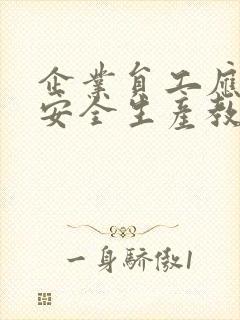 企業員工應
安全生產教
一身驕傲1